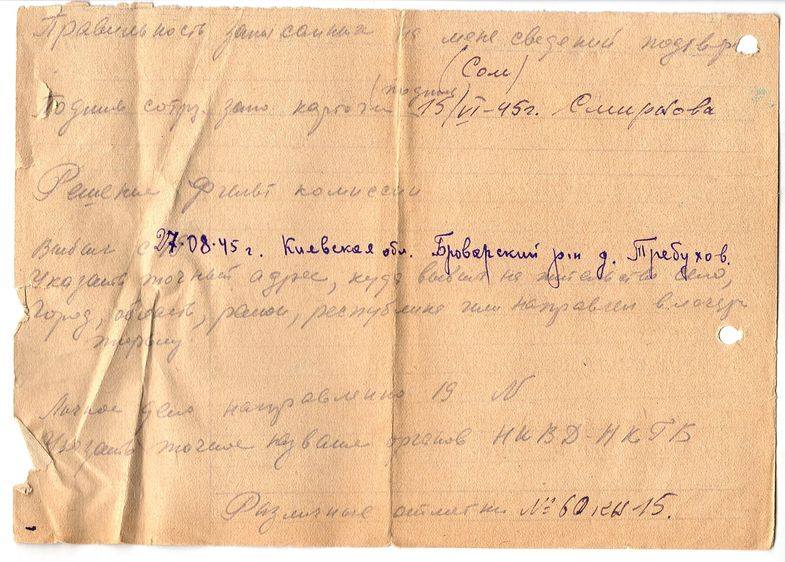 Правильность записанных на меня сведений подтвер
(Сом)
(подпись)
Подпись сотруд. запо. карточки 15/VI-45г. Смирнова
Решение Фильт комиссии
Выбыл с 27·08·45 г. Киевская обл. Броварский р-н д. Требухов.
Указать точный адрес, куда выбыл на жительство село,
Город, область, район, республика или направлен в лагерь
тюрьму
Личное дело направленно 19 N
Указать точное название органов НКВД-НКГБ
Различные отметки №